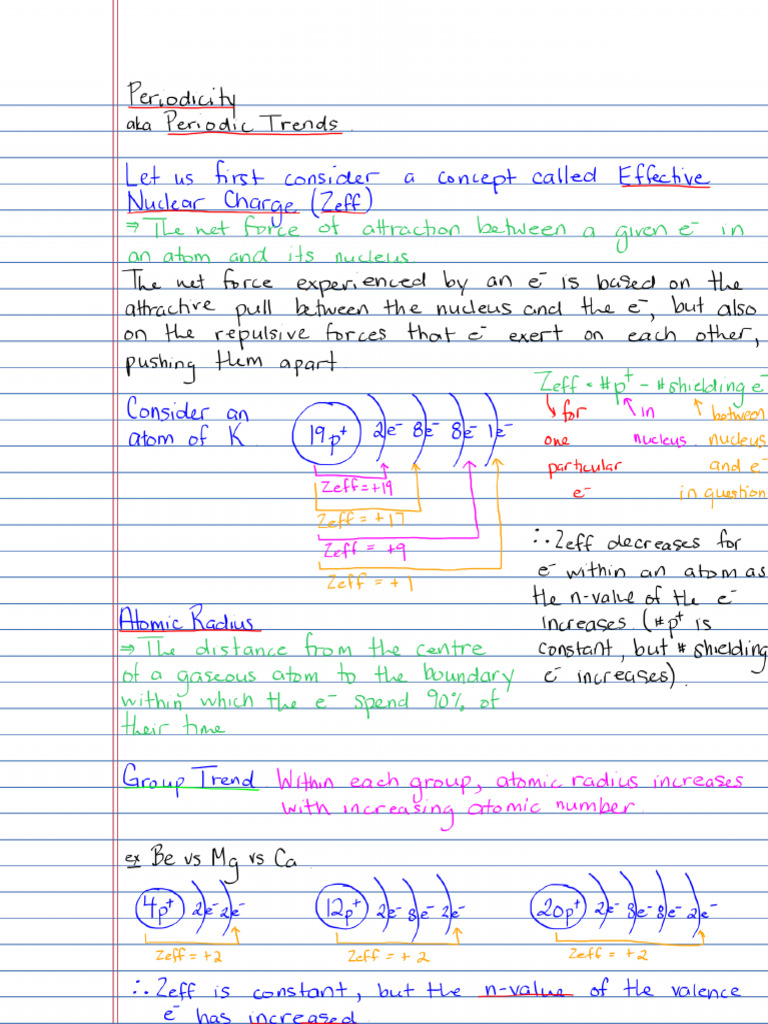 Periodicity
aka Periodic Trends
Let us first consider a concept called Effective
Nuclear Charge (Zeff)
⇒ The net force of attraction between a given e⁻ in
an atom and its nucleus.
The net force experienced by an e⁻ is based on the
attractive pull between the nucleus and the e⁻, but also
on the repulsive forces that e⁻ exert on each other,
pushing them apart
Consider an
atom of K
19p⁺ 2e⁻ 8e⁻ 8e⁻ 1e⁻
Zeff = +19
Zeff = +17
Zeff = +9
Zeff = +1
Zeff = #p⁺ - #shielding e⁻
for in between
one nucleus nucleus
particular and e⁻
e⁻ in question
∴ Zeff decreases for
e⁻ within an atom as
the n-value of the e⁻
increases. (#p⁺ is
constant, but # shielding
e⁻ increases).
Atomic Radius
⇒ The distance from the centre
of a gaseous atom to the boundary
within which the e⁻ spend 90% of
their time
Group Trend Within each group, atomic radius increases
with increasing atomic number.
ex Be vs Mg vs Ca
4p⁺ 2e⁻ 2e⁻ 12p⁺ 2e⁻ 8e⁻ 2e⁻ 20p⁺ 2e⁻ 8e⁻ 8e⁻ 2e⁻
Zeff = +2 Zeff = +2 Zeff = +2
∴ Zeff is constant, but the n-value of the valence
e⁻ has increased.